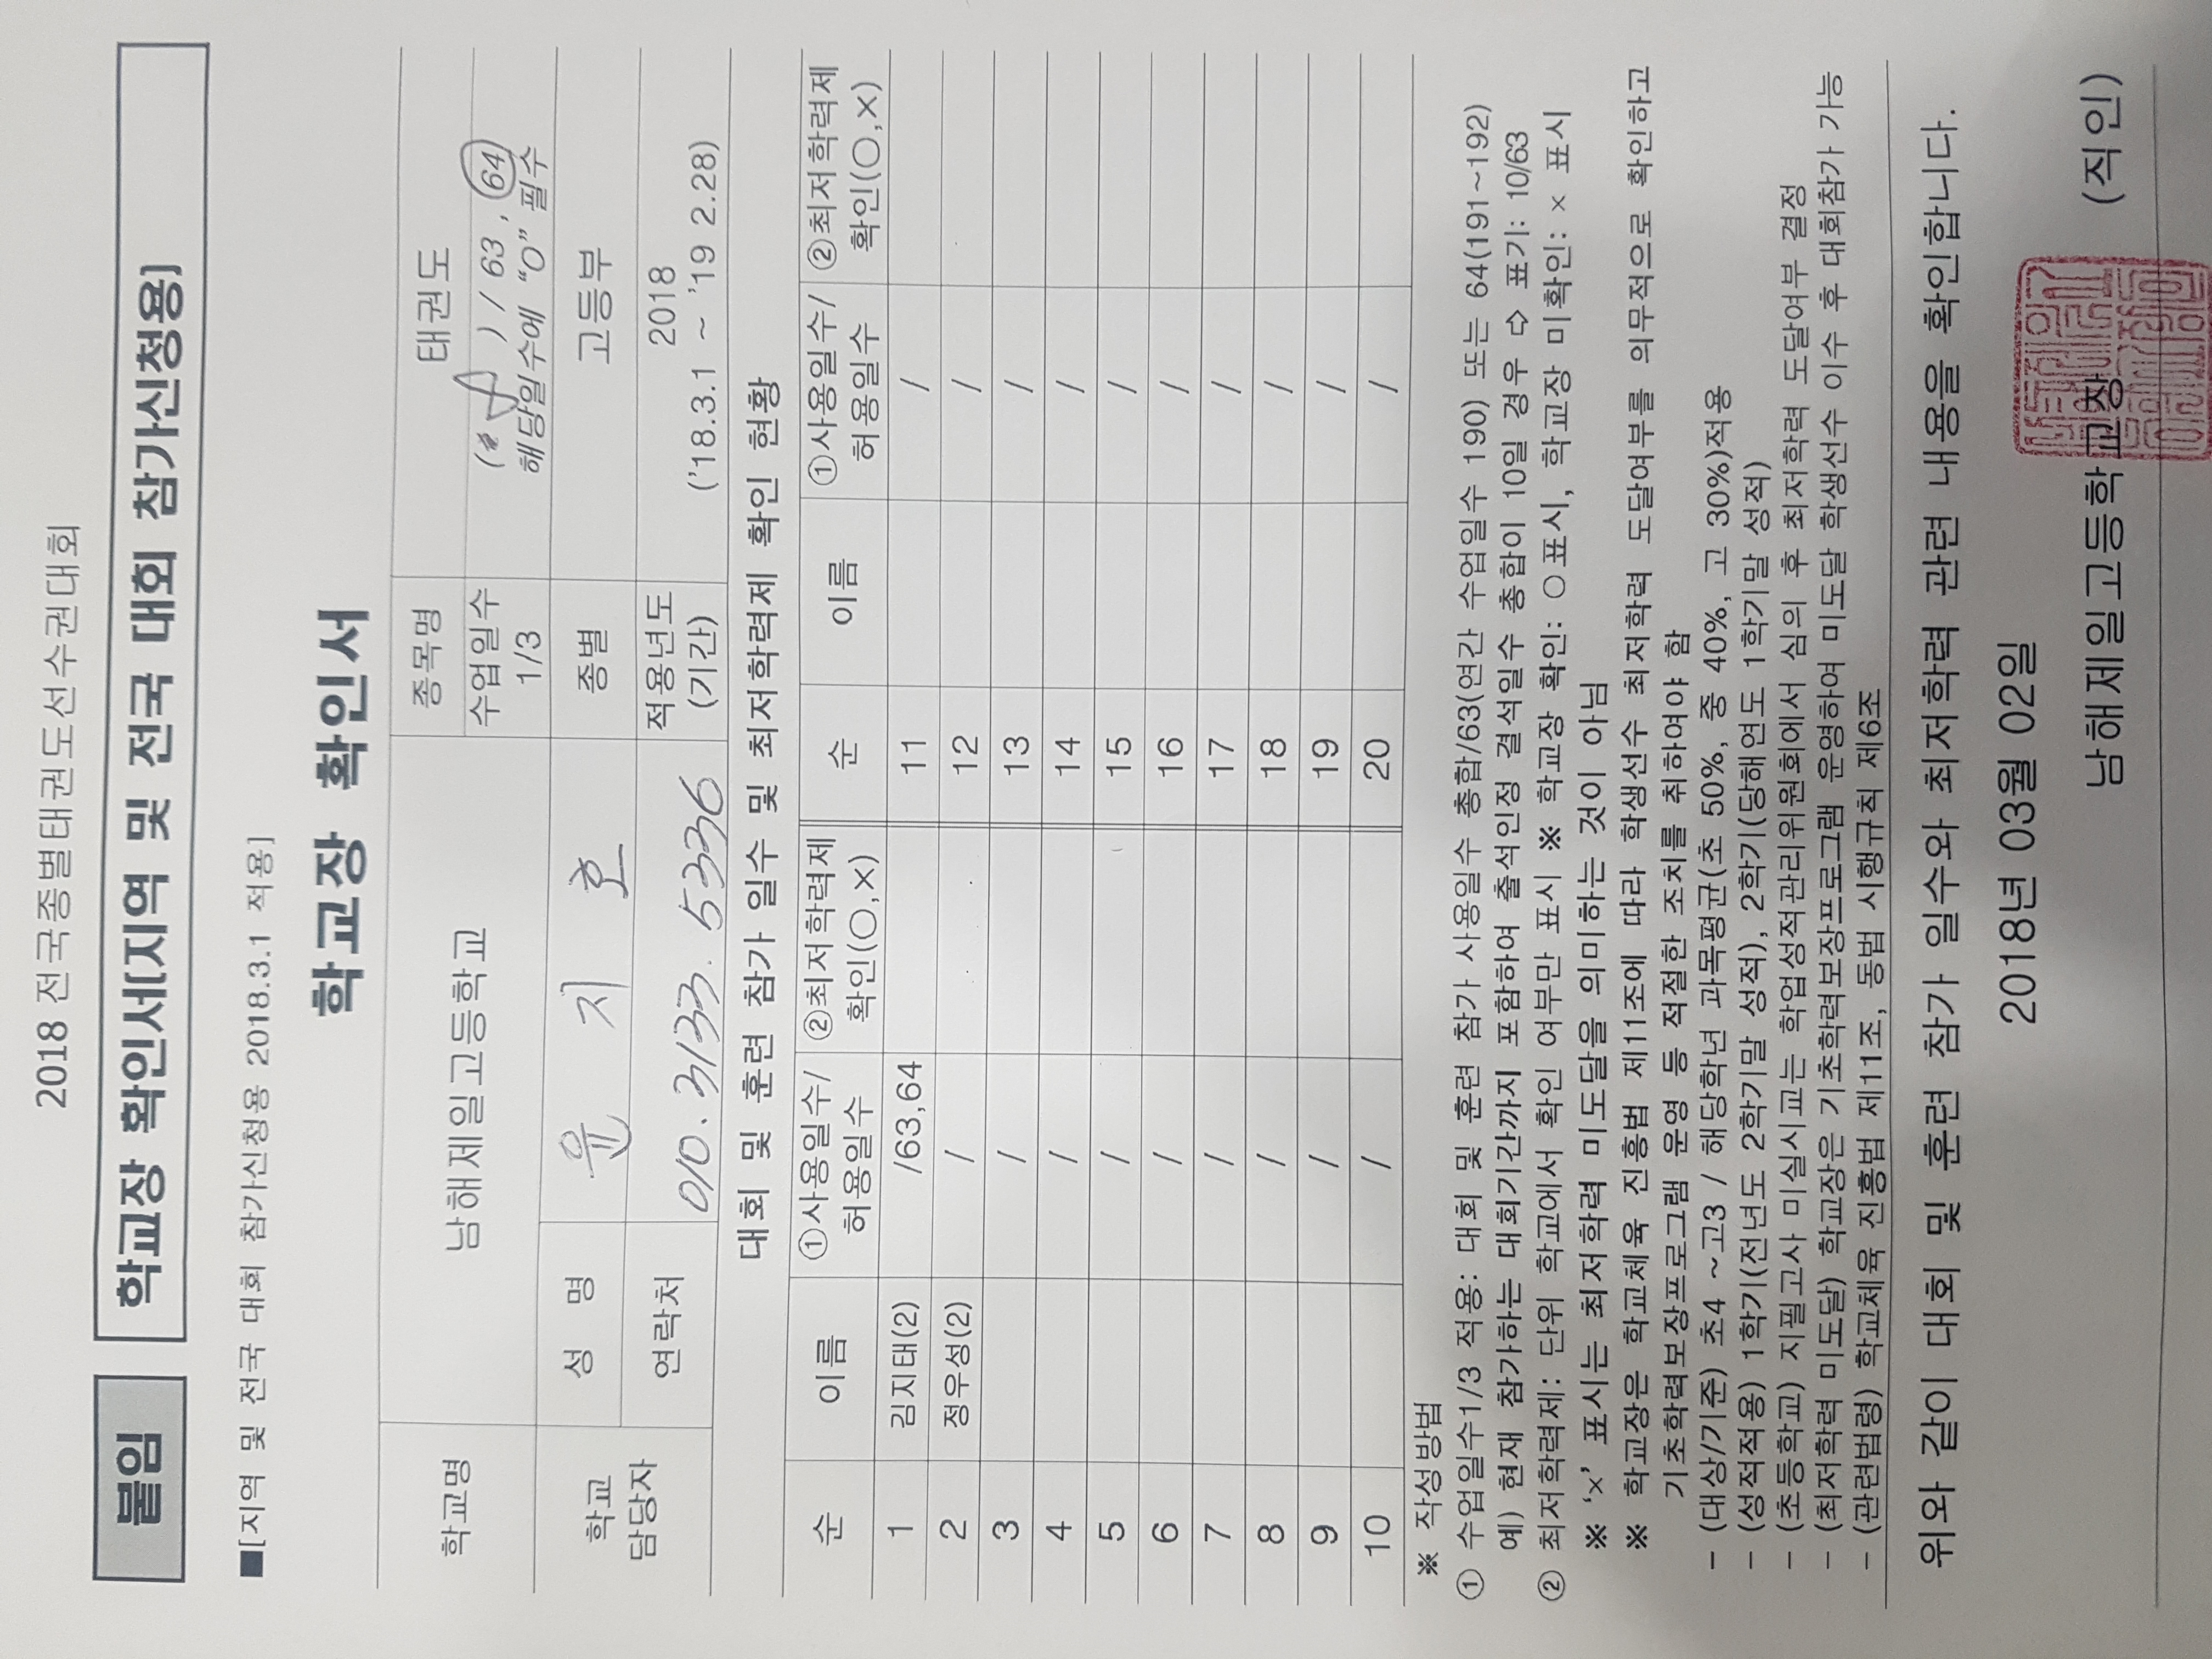 2018 전국종별태권도선수권대회
붙임 학교장 확인서[지역 및 전국 대회 참가신청용]
■[지역 및 전국 대회 참가신청용 2018.3.1 적용]
학교장 확인서
학교명 남해제일고등학교 종목명 태권도
수업일수 1/3 ( ) / 63 , 64
해당일수에 “O” 필수
학교 담당자 성 명 윤 지 호 종별 고등부
연락처 010. 3133. 5336 적용년도 (기간) 2018
('18.3.1 ~ '19 2.28)
대회 및 훈련 참가 일수 및 최저학력제 확인 현황
순 이름 ①사용일수/허용일수 ②최저학력제 확인(○,×) 순 이름 ①사용일수/허용일수 ②최저학력제 확인(○,×)
1 김지태(2) /63,64 11 /
2 정우성(2) / 12 /
3 / 13 /
4 / 14 /
5 / 15 /
6 / 16 /
7 / 17 /
8 / 18 /
9 / 19 /
10 / 20 /
※ 작성방법
① 수업일수1/3 적용: 대회 및 훈련 참가 사용일수 총합/63(연간 수업일수 190) 또는 64(191~192)
예) 현재 참가하는 대회기간까지 포함하여 출석인정 결석일수 총합이 10일 경우 ⇨ 표기: 10/63
② 최저학력제: 단위 학교에서 확인 여부만 표시 ※ 학교장 확인: ○ 표시, 학교장 미확인: × 표시
※ ‘×’ 표시는 최저학력 미도달을 의미하는 것이 아님
※ 학교장은 학교체육 진흥법 제11조에 따라 학생선수 최저학력 도달여부를 의무적으로 확인하고
기초학력보장프로그램 운영 등 적절한 조치를 취하여야 함
- (대상/기준) 초4 ~고3 / 해당학년 과목평균(초 50%, 중 40%, 고 30%)적용
- (성적적용) 1학기(전년도 2학기말 성적), 2학기(당해연도 1학기말 성적)
- (초등학교) 지필고사 미실시교는 학업성적관리위원회에서 심의 후 최저학력 도달여부 결정
- (최저학력 미도달) 학교장은 기초학력보장프로그램 운영하여 미도달 학생선수 이수 후 대회참가 가능
- (관련법령) 학교체육 진흥법 제11조, 동법 시행규칙 제6조
위와 같이 대회 및 훈련 참가 일수와 최저학력 관련 내용을 확인합니다.
2018년 03월 02일
남해제일고등학교장 (직인)